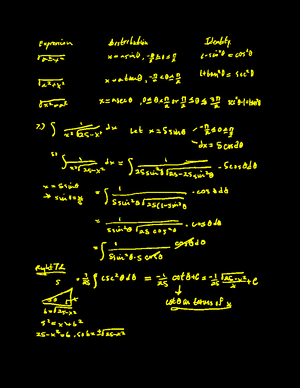 Expression Substitution Identity
√a²-x² x = a sinθ, -π/2 ≤ θ ≤ π/2 1-sin²θ = cos²θ
√a²+x² x = a tanθ, -π/2 < θ < π/2 1+tan²θ = sec²θ
√x²-a² x = a secθ, 0 ≤ θ < π/2 or π ≤ θ < 3π/2 sec²θ-1=tan²θ
∫ 1/x²√25-x² dx Let x = 5 sinθ -π/2 ≤ θ ≤ π/2
dx = 5cosθ
∫ 1/x²√25-x² dx = ∫ 1/25sin²θ√25-25sin²θ · 5cosθdθ
x = 5 sinθ
= ∫ 1/5sin²θ√25(1-sin²θ · cosθdθ
= ∫ 1/5sin²θ√25cos²θ · cosθdθ
= ∫ 1/5sin²θ·5cosθ cosθdθ
= 1/25 ∫ csc²θdθ = -1/25 cotθ+C = -1/25 √25-x²/x + C
5
cotθ in terms of x
b=√25-x²
5² = x²+b²
25-x²=b², so b=±√25-x²